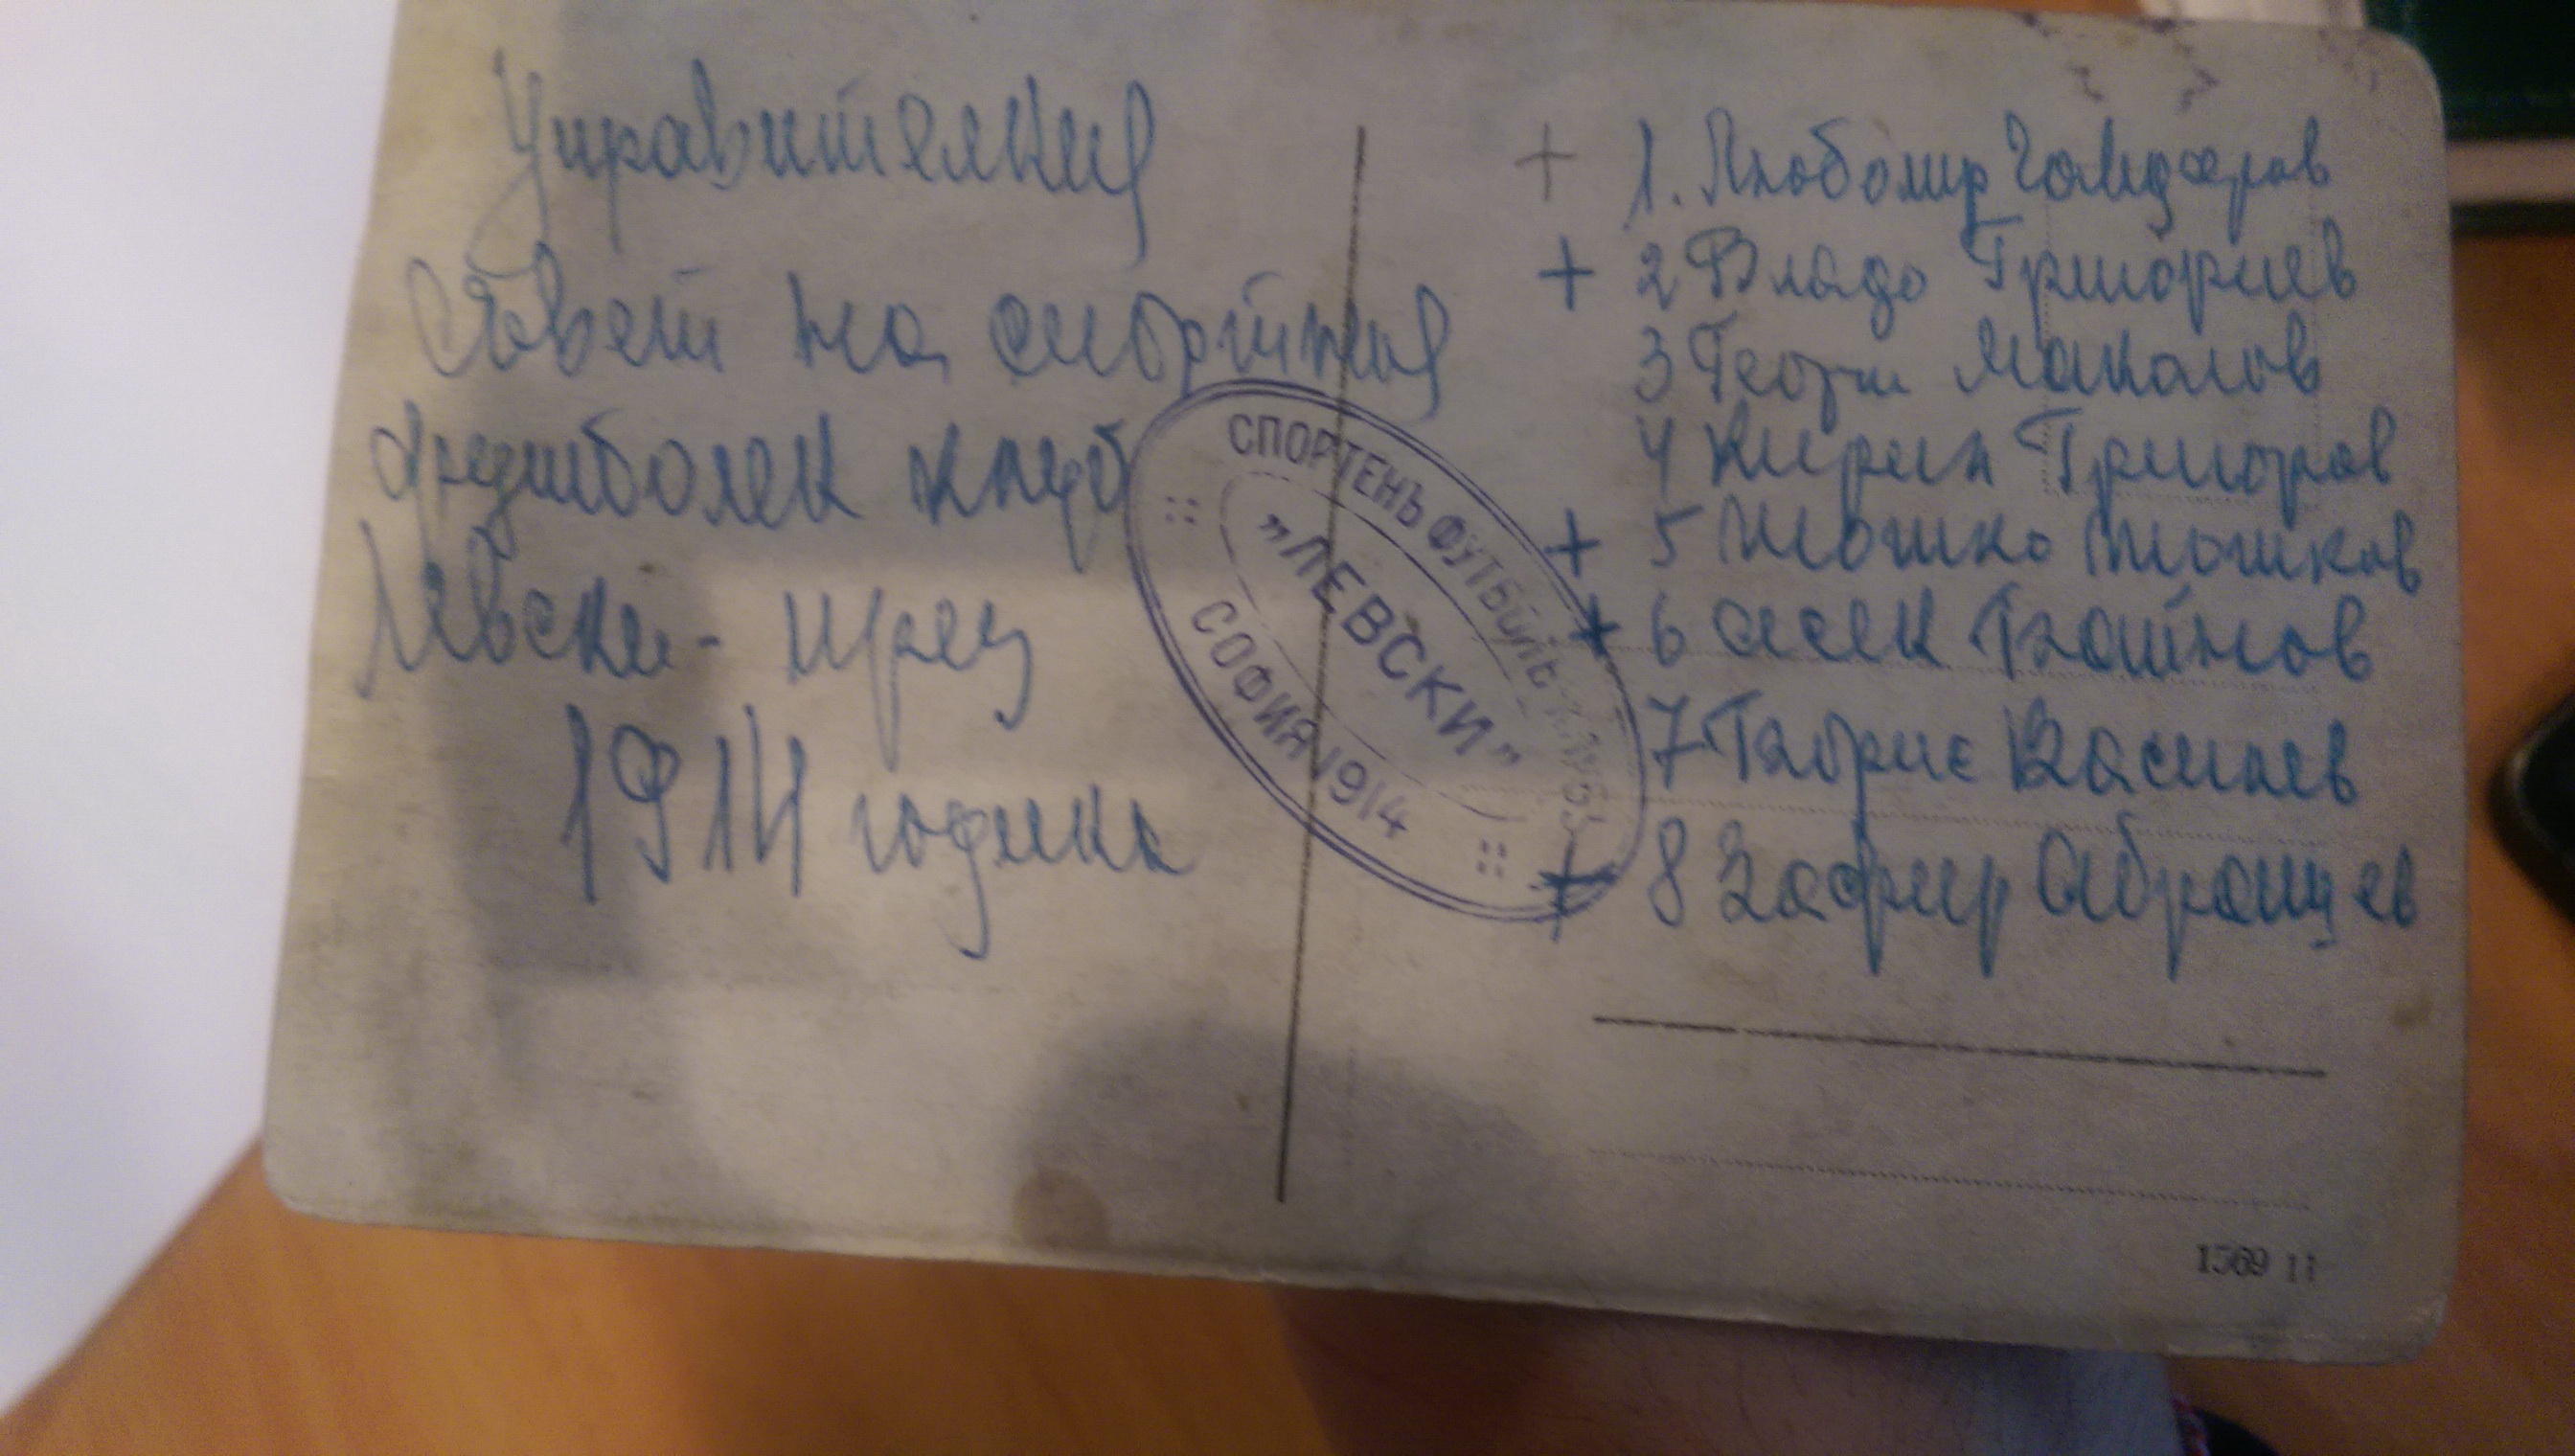 Управителния
Съвет на спортния
футболен клуб
Левски - през
1914 година
СПОРТЕНЪ ФУТБОЛЪ КЛУБЪ
„ЛЕВСКИ"
СОФИЯ 1914
+ 1. Любомир
+ 2 Владо Григориев
3 Георги Маналов
4 Кирил Григоров
+ 5 Тошко Тошков
+ 6 Асен
7 Таврие Василев
+ 8 Зафир Абрашев
1569 11